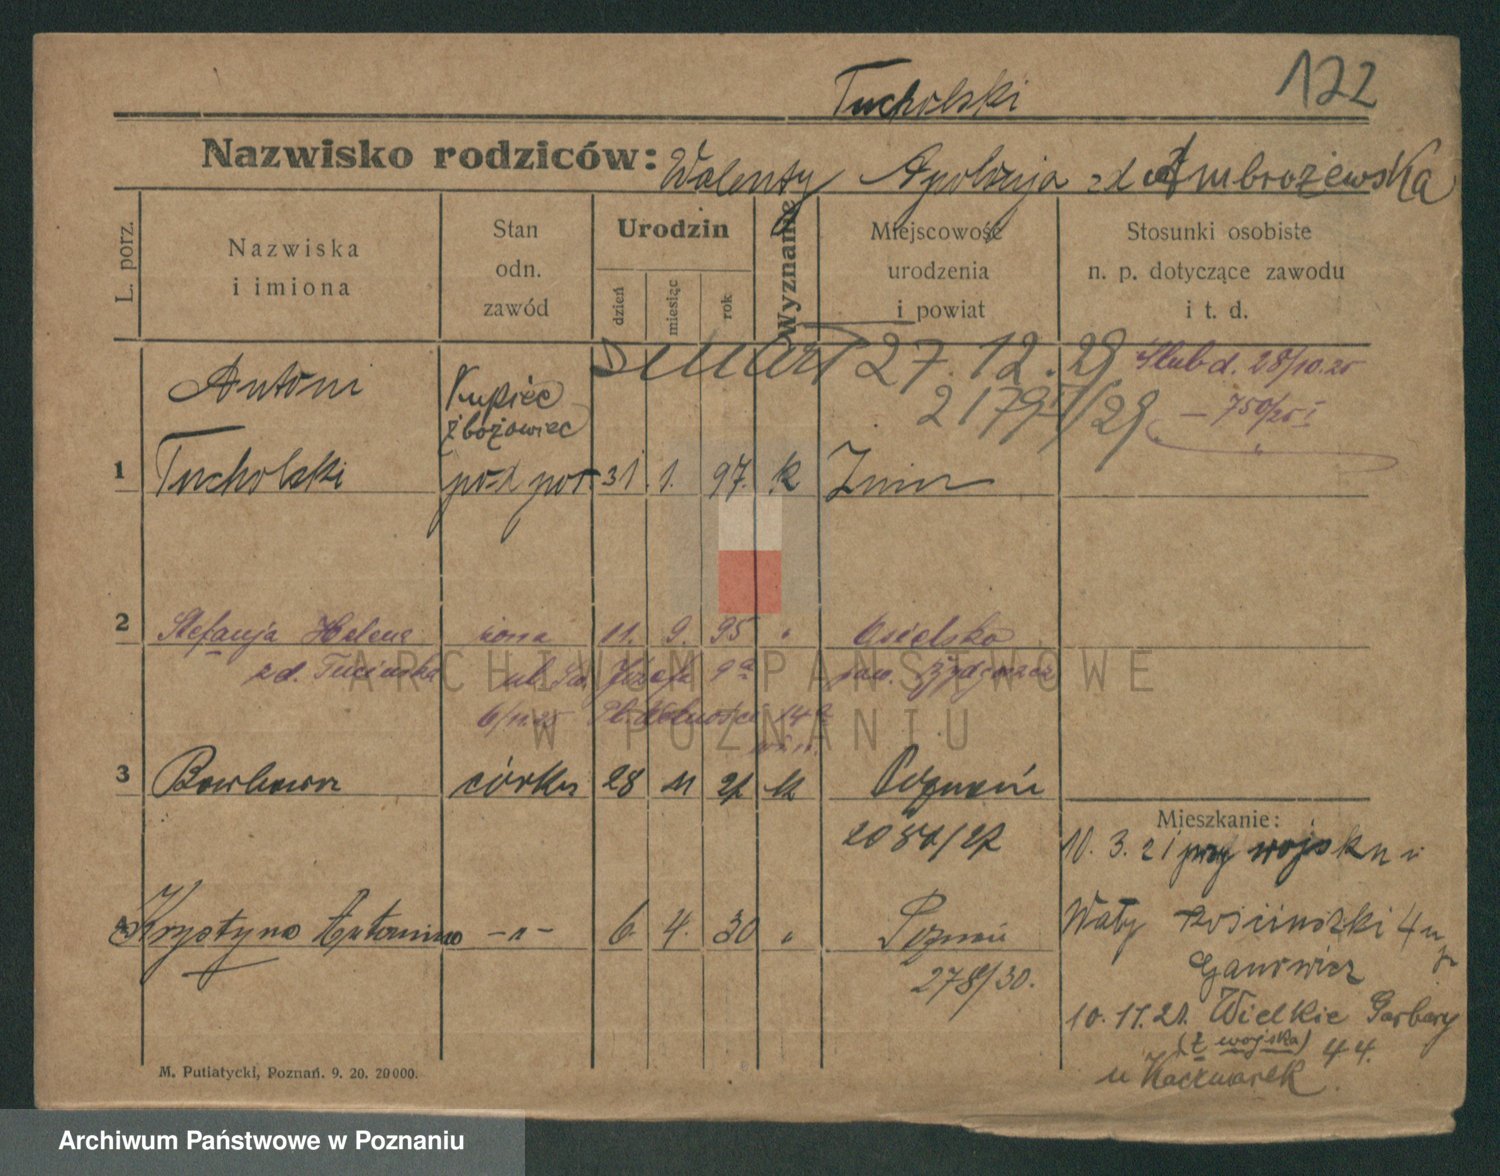 122
Tucholski
Nazwisko rodziców: Walenty Apolonja zd Ambrożewska
L. porz.
Nazwiska i imiona
Stan odn. zawód
Urodzin
dzień
miesiąc
rok
Wyznanie
Miejscowość urodzenia i powiat
Stosunki osobiste n. p. dotyczące zawodu i t. d.
27.12.29
2179/29
Ślub d. 28/10.25
750/25 I
Antoni
Kupiec
zbożowiec
1 Tucholski 31. 1. 97. k Żnin
2 Stefanja Helena żona 11. 9. 95 " Osielsko
zd. ul. Józefa 9a pow. Bydgoszcz
6/11.25 Pl. Wolności 14a
3 Barbara córka 28 11 27 k Poznań
2080/27
Mieszkanie:
10. 3. 21 przy wojsku
4 Krystyna Antonina -"- 6. 4. 30 " Poznań
278/30.
Wały 4 u
Ganowicz
10. 11. 21. Wielkie Garbary
(z wojska) 44.
u Kaczmarek.
M. Putiatycki, Poznań. 9. 20. 20000.
ARCHIWUM PAŃSTWOWE
W POZNANIU
Archiwum Państwowe w Poznaniu